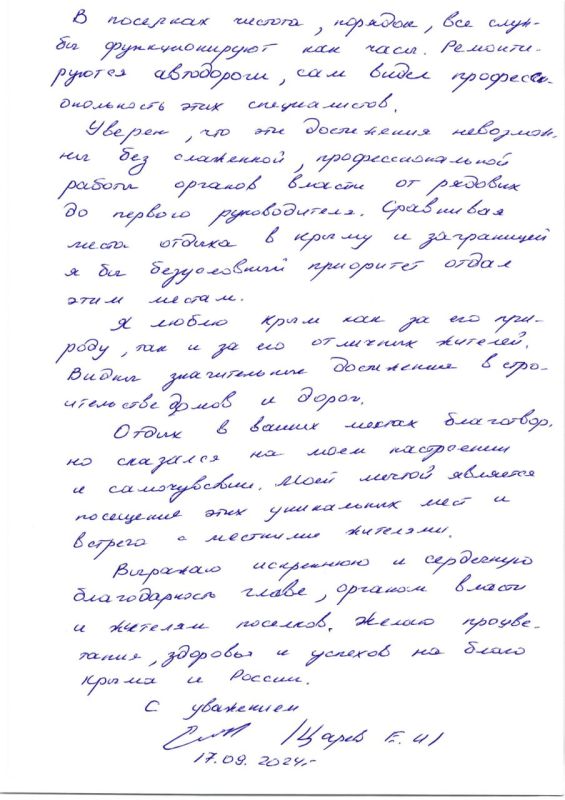 В поселках чистота, порядок, все служ-
бы функционируют как часы. Ремонти-
руются автодороги, сам видел професси-
ональность этих специалистов.
Уверен, что эти достижения невозмож-
ны без слаженной, профессиональной
работы органов власти от рядовых
до первого руководителя. Сравнивая
места отдыха в Крыму и заграницей
я бы безусловный приоритет отдал
этим местам.
Я люблю Крым как за его при-
роду, так и за его отличных жителей.
Видны значительные достижения в стро-
ительстве домов и дорог.
Отдых в ваших местах благотвор.
но сказался на моем настроении
и самочувствии. Моей мечтой является
посещение этих уникальных мест и
встреча с местными жителями.
Выражаю искреннюю и сердечную
благодарность главе, органам власти
и жителям поселков. Желаю процве-
тания, здоровья и успехов на благо
Крыма и России.
С уважением
/Царев Е.И/
17.09.2024г.